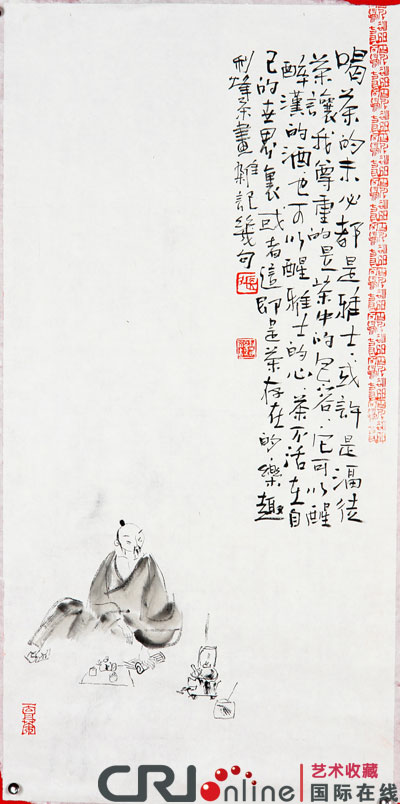 喝茶的未必都是雅士、或許是徒
茶讓我尊重的是茶中的包容、它可以醒
醉漢的酒、也可以醒雅士的心、茶不活在自
己的世界裏、或者這即是茶存在的樂趣
畫雜記幾句
張
CRI online
艺术收藏
国际在线